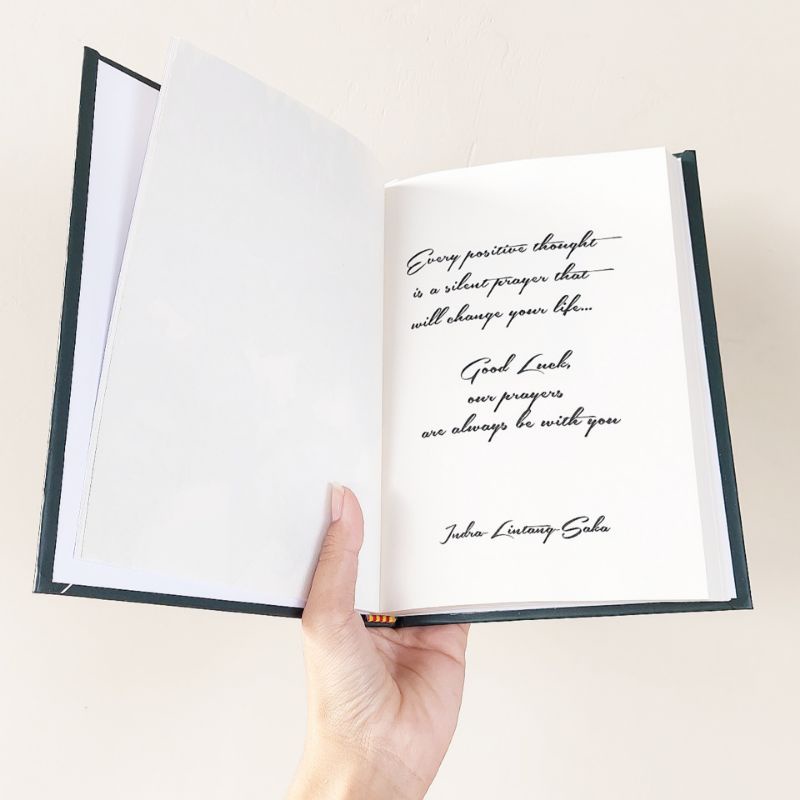 Every positive thought
is a silent prayer that
will change your life...
Good Luck,
our prayers
are always be with you
Indra-Lintang-Saka